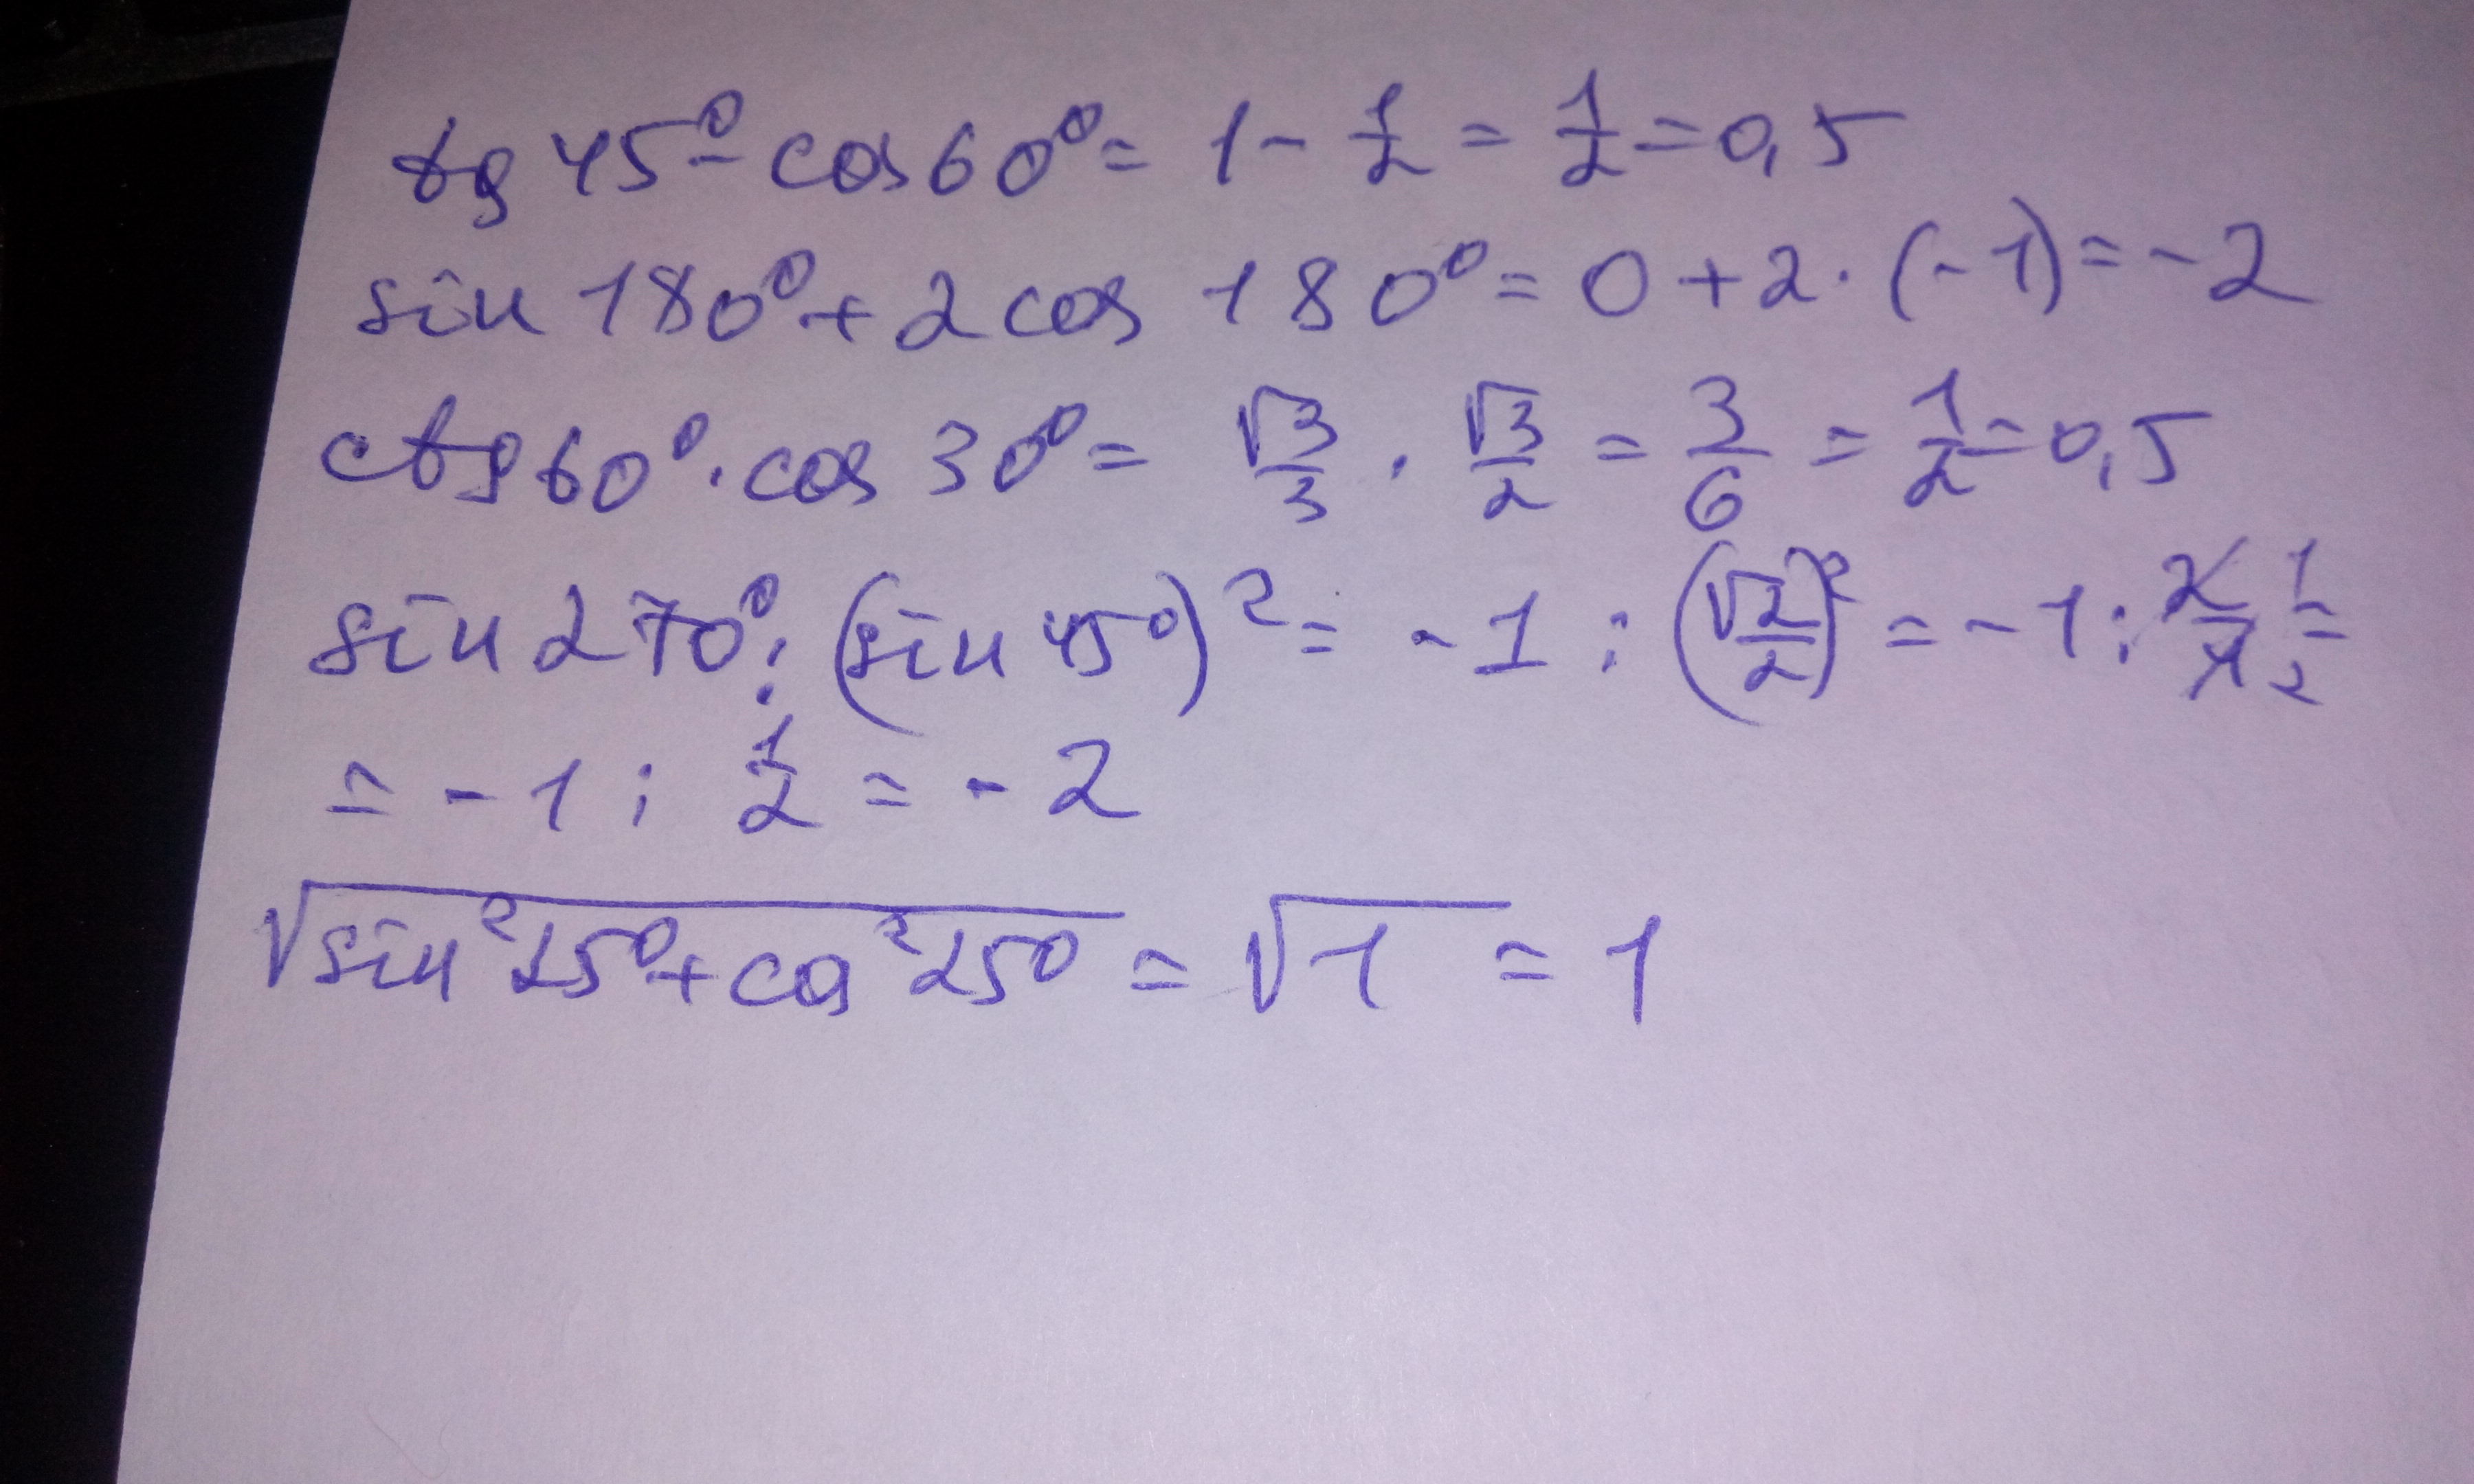 tg 45° - cos 60° = 1 - 1/2 = 1/2 = 0,5
sin 180° + 2 cos 180° = 0 + 2 · (-1) = -2
ctg 60° · cos 30° = √3/3 · √3/2 = 3/6 = 1/2 = 0,5
sin 270° : (sin 45°)² = -1 : (√2/2)² = -1 : 2/4 1/2 =
= -1 : 1/2 = -2
√(sin² 25° + cos² 25°) = √1 = 1